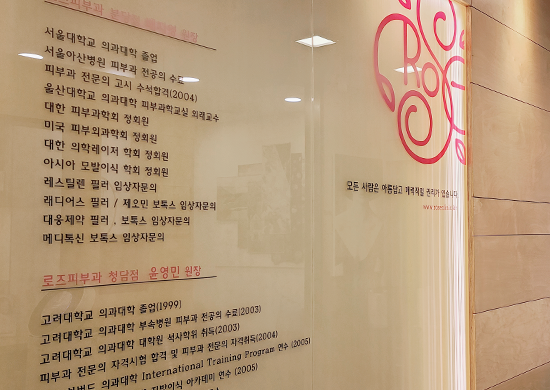 로즈피부과 청담점 원장
서울대학교 의과대학 졸업
서울아산병원 피부과 전공의 수료
피부과 전문의 고시 수석합격(2004)
울산대학교 의과대학 피부과학교실 외래교수
대한 피부과학회 정회원
미국 피부외과학회 정회원
대한 의학레이저 학회 정회원
아시아 모발이식 학회 정회원
레스틸렌 필러 임상자문의
래디어스 필러 / 제오민 보톡스 임상자문의
대웅제약 필러 , 보톡스 임상자문의
메디톡신 보톡스 임상자문의
로즈피부과 청담점 윤영민 원장
고려대학교 의과대학 졸업(1999)
고려대학교 의과대학 부속병원 피부과 전공의 수료(2003)
고려대학교 의과대학 대학원 석사학위 취득(2003)
피부과 전문의 자격시험 합격 및 피부과 전문의 자격취득(2004)
의과대학 International Training Program 연수 (2005)
아카데미 연수 (2005)
RO
모든 사람은 아름답고 매력적일 권리가 있습니다